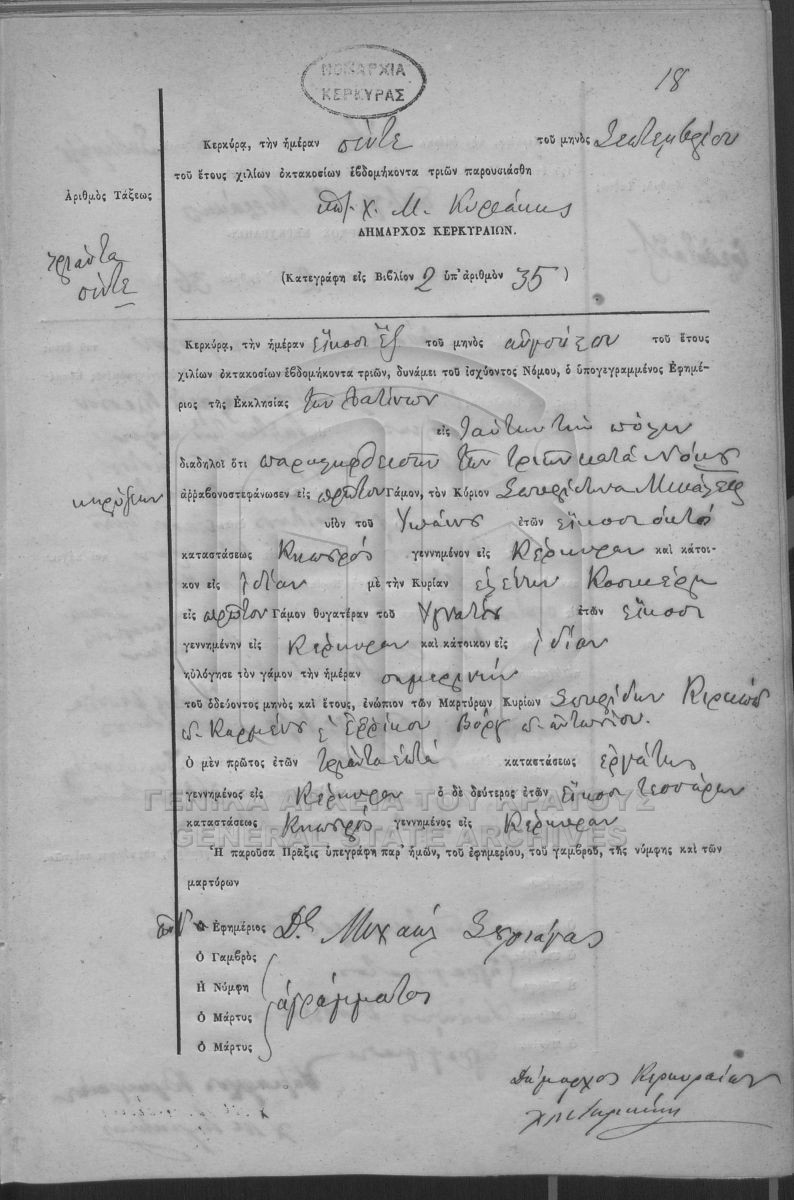 18
ΝΟΜΑΡΧΙΑ
ΚΕΡΚΥΡΑΣ
Κερκύρᾳ, τὴν ἡμέραν πέντε τοῦ μηνὸς Σεπτεμβρίου
τοῦ ἔτους χιλίων ὀκτακοσίων ἑβδομήκοντα τριῶν παρουσιάσθη
Ἀριθμὸς Τάξεως
Χ. Μ. Κυριάκης
ΔΗΜΑΡΧΟΣ ΚΕΡΚΥΡΑΙΩΝ.
τριάντα
πέντε
(Κατεγράφη εἰς Βιβλίον 2 ὑπ' ἀριθμὸν 35)
Κερκύρᾳ, τὴν ἡμέραν εἴκοσι ἕξ τοῦ μηνὸς αὐγούστου τοῦ ἔτους
χιλίων ὀκτακοσίων ἑβδομήκοντα τριῶν, δυνάμει τοῦ ἰσχύοντος Νόμου, ὁ ὑπογεγραμμένος Ἐφημέ-
ριος τῆς Ἐκκλησίας τῶν Λατίνων
εἰς ταύτην τὴν πόλιν
διαδηλοῖ ὅτι τῶν τριῶν κατὰ Νόμον
κηρύξεων
ἀῤῥαβονοστεφάνωσεν εἰς πρῶτον Γάμον, τὸν Κύριον Σπυρίδωνα
υἱὸν τοῦ ἐτῶν εἴκοσι ὀκτώ
καταστάσεως Κηπουρός γεννημένον εἰς Κέρκυραν καὶ κάτοι-
κον εἰς ἰδίαν μὲ τὴν Κυρίαν Ελένην
εἰς πρῶτον Γάμον θυγατέραν τοῦ Ιγνατίου ἐτῶν εἴκοσι
γεννημένην εἰς Κέρκυραν καὶ κάτοικον εἰς ἰδίαν
ηὐλόγησε τὸν γάμον τὴν ἡμέραν σημερινήν
τοῦ ὁδεύοντος μηνὸς καὶ ἔτους, ἐνώπιον τῶν Μαρτύρων Κυρίων Σπυρίδων
Ερρίκου Βόργ αντωνίου.
Ὁ μὲν πρῶτος ἐτῶν τριάντα επτά καταστάσεως εργάτης
γεννημένος εἰς Κέρκυραν ὁ δὲ δεύτερος ἐτῶν εἴκοσι τεσσάρων
ΓΕΝΙΚΑ ΑΡΧΕΙΑ ΤΟΥ ΚΡΑΤΟΥΣ
καταστάσεως Κηπουρός γεννημένος εἰς Κέρκυραν
GENERAL STATE ARCHIVES
Ἡ παροῦσα Πρᾶξις ὑπεγράφη παρ' ἡμῶν, τοῦ ἐφημερίου, τοῦ γαμβροῦ, τῆς νύμφης καὶ τῶν
μαρτύρων
Ὁ Ἐφημέριος Μιχαήλ
Ὁ Γαμβρὸς
Ἡ Νύμφη
ἀγράμματοι
Ὁ Μάρτυς
Ὁ Μάρτυς
Δήμαρχος Κερκυραίων